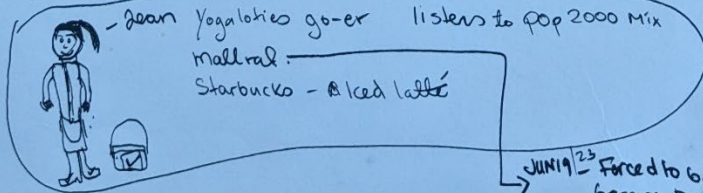 Jean Yogaloties go-er listens to pop 2000 Mix
mallrat.
Starbucks - Iced latté
JUN19 23 - Forced to